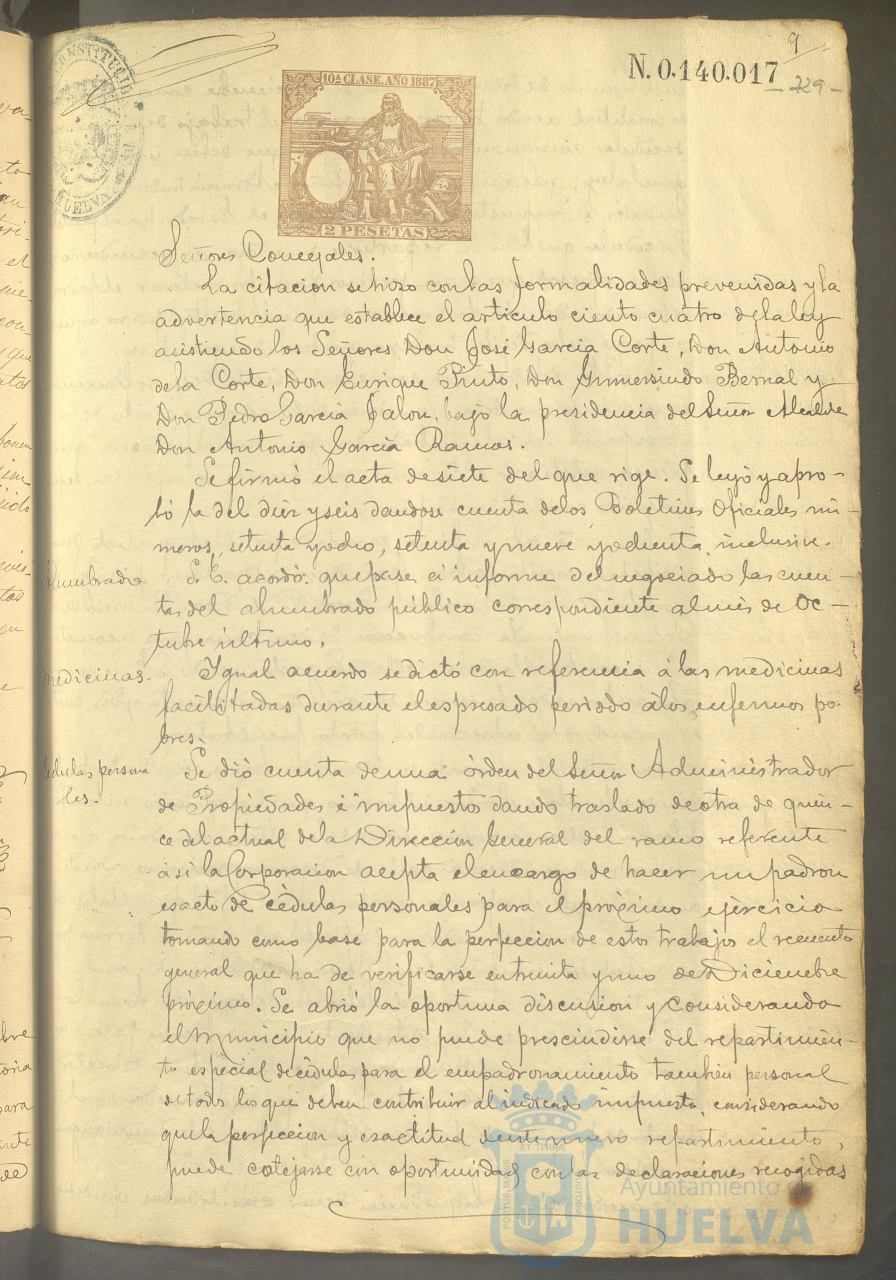 9
N. 0.140.017
229
CONSTITUCIO
HUELVA
10ª CLASE. AÑO 1887
2 PESETAS
Señores Concejales.
La citacion se hizo con las formalidades prevenidas y la
advertencia que establece el articulo ciento cuatro de la ley
asistiendo los Señores Don José Garcia Corte, Don Antonio
de la Corte, Don Enrique Pinto, Don Gumersindo Bernal y
Don Pedro Garcia Jalon, bajo la presidencia del Señor Alcalde
Don Antonio García Ramos.
Se firmó el acta de siete del que rige. Se leyó y apro-
bó la del diez y seis dandose cuenta de los Boletines Oficiales nú-
meros, setenta y ocho, setenta y nueve y ochenta, inclusive.
Alumbrado
S. E. acordó: que pase á informe del negociado las cuen-
tas del alumbrado público correspondiente al mes de Oc-
tubre último.
medicinas.
Ygual acuerdo se dictó con referencia á las medicinas
facilitadas durante el espresado periodo á los enfermos po-
bres.
Cédulas persona
les.
Se dió cuenta de una órden del Señor Administrador
de Propiedades é impuestos dando traslado de otra de quin-
ce del actual de la Direccion General del ramo referente
á si la Corporacion acepta el encargo de hacer un padron
esacto de cédulas personales para el próximo ejercicio
tomando como base para la perfeccion de estos trabajos el recuento
general que ha de verificarse en treinta y uno de Diciembre
próximo. Se abrió la oportuna discusion y considerando
el Municipio que no puede prescindirse del repartimien-
to especial de cédulas para el empadronamiento tambien personal
de todos los que deben contribuir al indicado impuesto, considerando
que la perfeccion y exactitud de este nuevo repartimiento,
puede cotejarse con oportunidad con las declaraciones recogidas
Ayuntamiento de
HUELVA